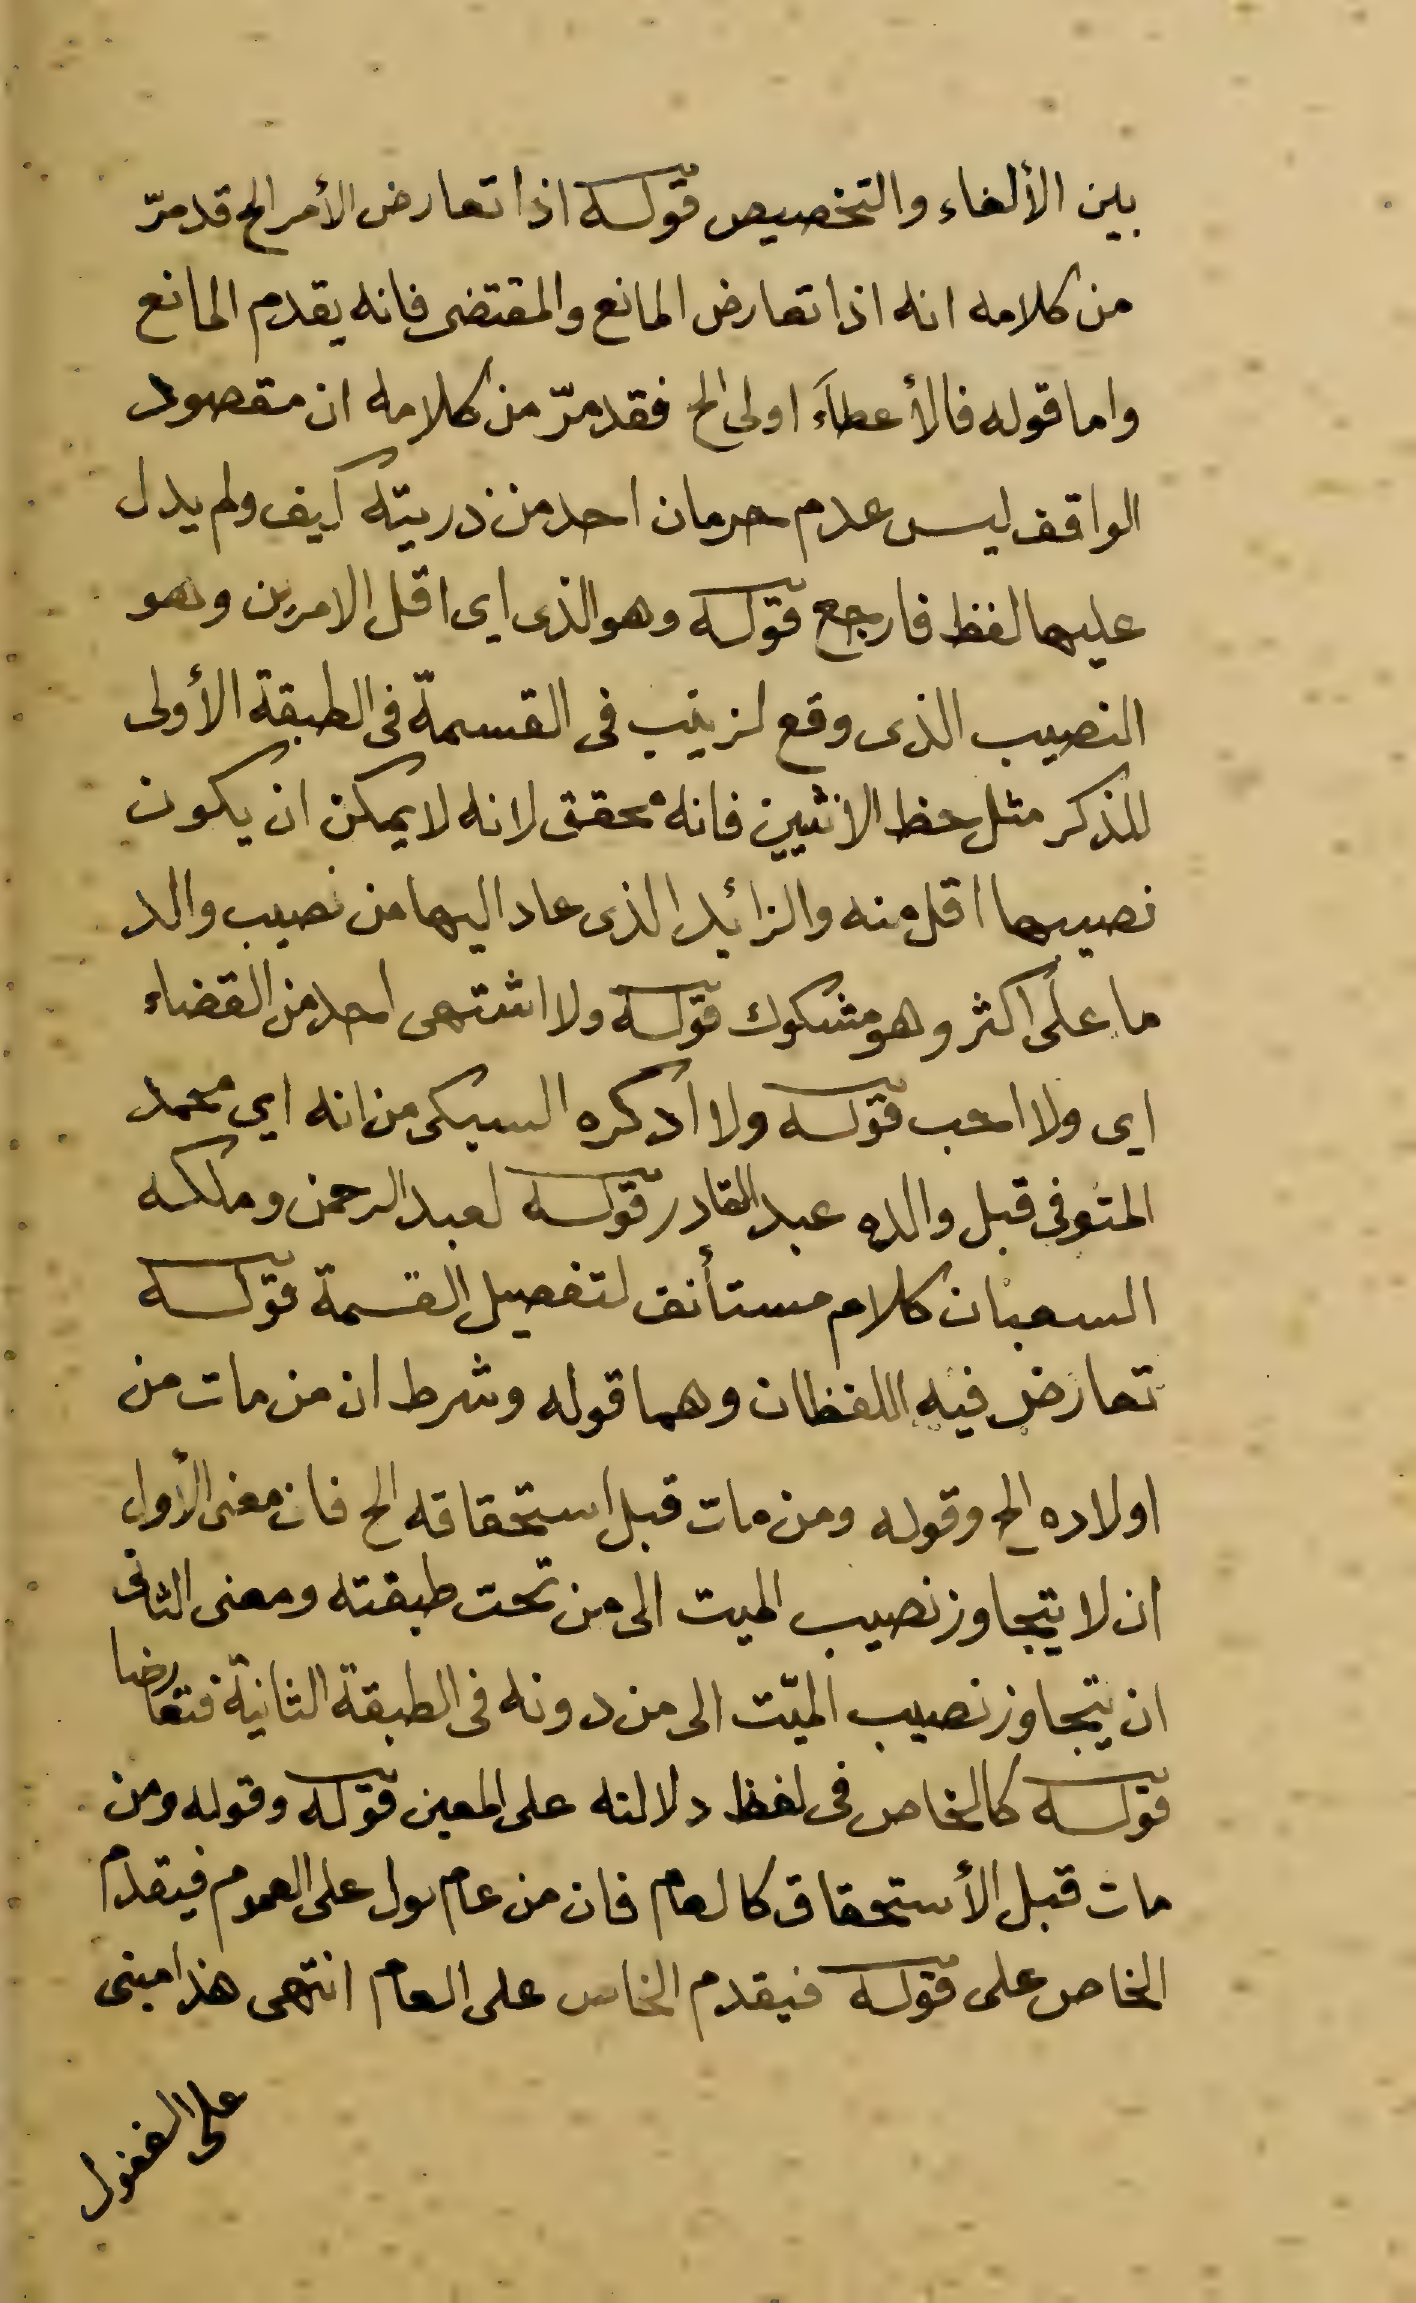 بين الألغاء والتخصيص قوله اذا تعارض الأمر الخ قد مرّ
من كلامه انه اذا تعارض المانع والمقتضى فانه يقدم المانع
واما قوله فالأعطآء اولى الخ فقد مرّ من كلامه ان مقصود
الواقف ليس عدم حرمان احد من ذريته كيف ولم يدل
عليهما لفظ فارجع قوله وهو الذى اى اقل الامرين وهو
النصيب الذى وقع لزينب فى القسمة فى الطبقة الأولى
للذكر مثل حظ الانثيين فانه محقق لانه لا يمكن ان يكون
نصيبها اقل منه والزائد الذى عاد اليها من نصيب والد
ما على اكثر وهو مشكوك قوله ولا اشتهى احد من القضاء
اى ولا احب قوله ولا اذكره السبكى من انه اي محمد
المتوفى قبل والده عبد القادر قوله لعبد الرحمن وملكه
السبعان كلام مستأنف لتفصيل القسمة قوله
تعارض فيه اللفظان وهما قوله وشرط ان من مات من
اولاده الخ وقوله ومن مات قبل استحقاقه الخ فان معنى الأول
ان لا يتجاوز نصيب الميت الى من تحت طبقته ومعنى الثانى
ان يتجاوز نصيب الميّت الى من دونه فى الطبقة الثانية فتعارضا
قوله كالخاص فى لفظ دلالته على المعين قوله وقوله ومن
مات قبل الأستحقاق كالعام فان من عام على العموم فيقدم
الخاص على قوله فيقدم الخاص على العام انتهى هذا مبنى
على